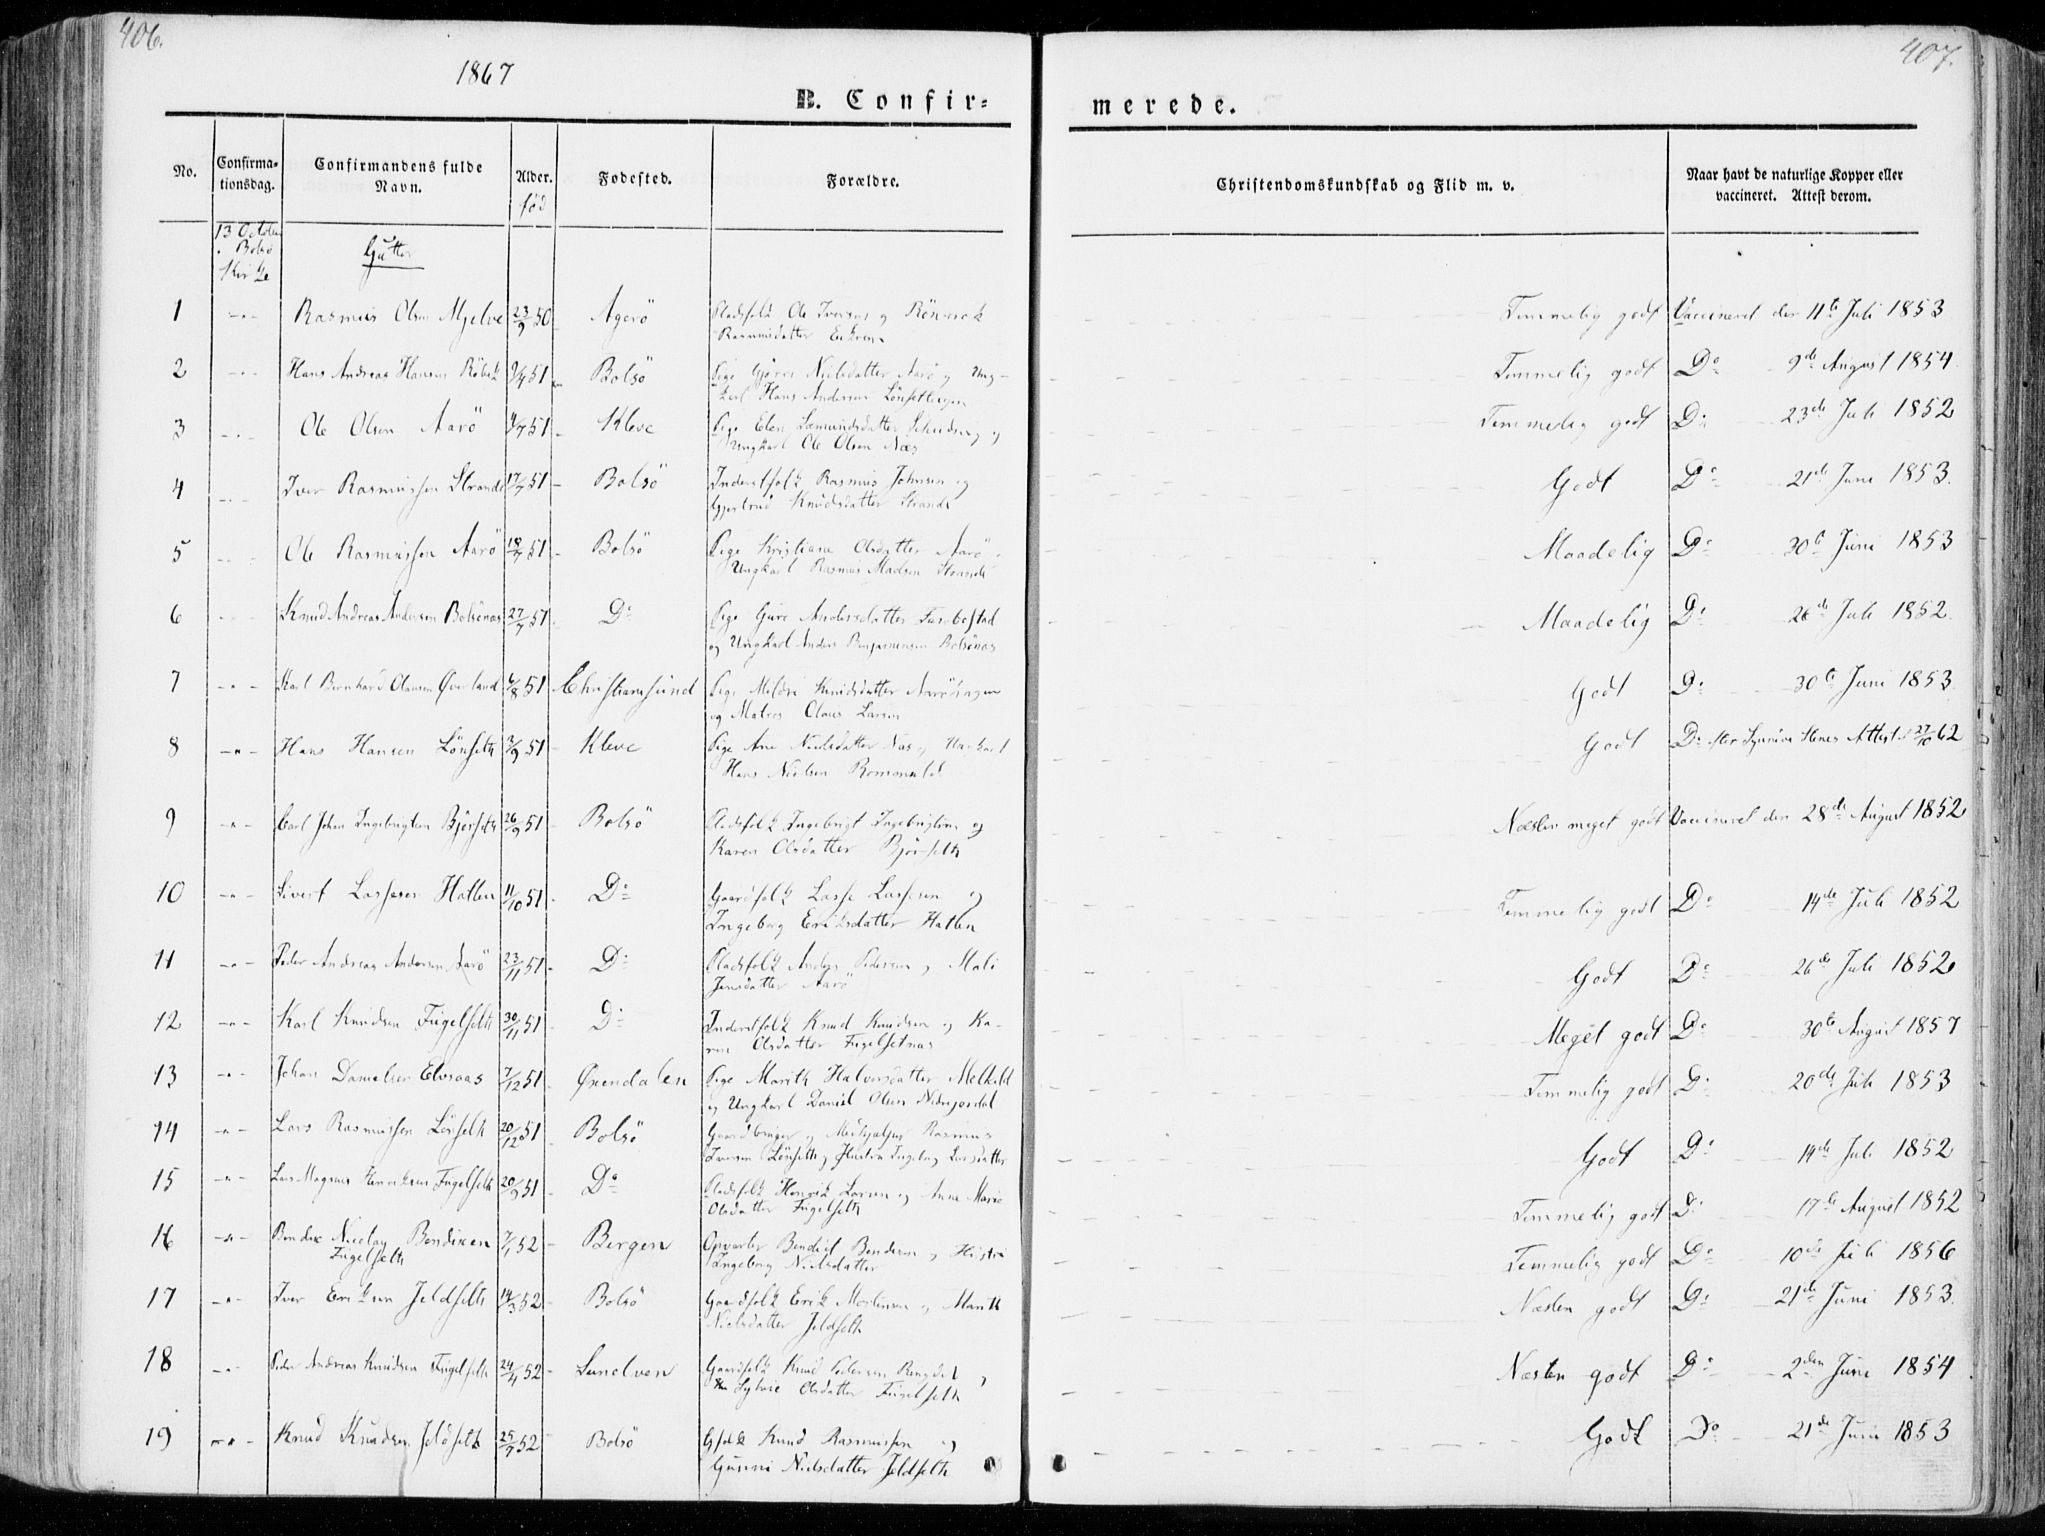 406.
407.
1867
B. Confir=
merede.
No.
Confirma-
tionsdag.
Confirmandens fulde
Navn.
Alder.
fød
Fødested.
Forældre.
Christendomskundskab og Flid m. v.
Naar havt de naturlige Kopper eller
vaccineret. Attest derom.
13 October
Bolsö
Kirke
Gutter
1 -"- Rasmus Olsen Mjelve 23/9 50 Agerö Pladsfolk Ole Iversen og
Rasmusdatter Temmelig godt Vaccineret den 11te Juli 1853
2 -"- Hans Andreas Hansen Röbek 51 Bolsö Pige Gjørri Nielsdatter Aarö og Ung-
karl Hans Andersen Temmelig godt Do 9de August 1854
3 -"- Ole Olsen Aarö 51 Kleve Pige Elen og
Ungkarl Ole Olsen Næs Temmelig godt Do 23de Juli 1852
4 -"- Iver Rasmussen Strande 17/7 51 Bolsö Inderstfolk Rasmus Johnsen og
Gjertrud Knudsdatter Strande Godt Do 21de Juni 1853.
5 -"- Ole Rasmussen Aarö 18/7 51 Bolsö Pige Kristiane Olsdatter Aarö
Ungkarl Rasmus Madsen Strande Maadelig Do 30te Juni 1853
6 -"- Knud Andreas Andersen Bolsönæs 27/7 51 Do Pige Guri Andersdatter
og Ungkarl Anders Benjaminsen Bolsönæs Maadelig Do 26de Juli 1852.
7 -"- Karl Bernhard Olausen Øverland 6/8 51 Christiansund Pige Mildri Knudsdatter
og Matros Olaus Larsen Godt Do 30te Juni 1853
8 -"- Hans Hansen Lönseth 3/9 51 Kleve Pige Ane Nielsdatter Næs og Ungkarl
Hans Nielsen Godt Do Attest 27/10 62
9 -"- Carl Johan Ingebrigtsen Bjørseth 26/9 51 Bolsö Pladsfolk Ingebrigt Ingebrigtsen og
Karen Olsdatter Bjørseth Næsten meget godt Vaccineret den 28de August 1852
10 -"- Sivert Lassesen Hatlen 11/10 51 Do Gaardfolk Lasse Lassesen og
Ingeborg Eriksdatter Hatlen Temmelig godt Do 14de Juli 1852
11 -"- Peder Andreas Andersen Aarö 23/11 51 Do Pladsfolk Anders Pedersen og Mali
Jensdatter Aarö Godt Do 26de Juli 1852
12 -"- Karl Knudsen Fugelseth 30/11 51 Do Inderstfolk Knud Knudsen og Ka-
ren Olsdatter Fugelsetnæs Meget godt Do 30te August 1857
13 -"- Johan Danielsen Elvsaas 7/12 51 Øxendalen Pige Marith Halvorsdatter
og Ungkarl Daniel Olsen Temmelig godt Do 20de Juli 1853
14 -"- Lars Rasmussen Lönseth 20/12 51 Bolsö Gaardbruger og Rasmus
Iversen Lönseth og Hustru Ingeborg Larsdatter Godt Do 14de Juli 1852
15 -"- Lars Magnus Henriksen Fugelseth 20/9 51 Do Pladsfolk Henrik Larsen og Anne Marie
Olsdatter Fugelseth Temmelig godt Do 17de August 1852
16 -"- Bendix Nicolay Bendixen
Fugelseth 7/1 52 Bergen Bendixen og Hustru
Ingeborg Nielsdatter Temmelig godt Do 10de Juli 1856
17 -"- Iver Eriksen Jeldseth 14/3 52 Bolsö Gaardfolk Erik Mortensen og Marith
Nielsdatter Jeldseth Næsten godt Do 21de Juni 1853.
18 -"- Peder Andreas Knudsen Fugelseth 24/4 52 Sunelven Gaardfolk Knud Pedersen og
Sylvie Olsdatter Fugelseth Næsten godt Do 2den Juni 1854
19 -"- Knud Knudsen Jeldseth 25/7 52 Bolsö Gfolk Knud Rasmussen og
Gunni Nielsdatter Jeldseth Godt Do 21de Juni 1853